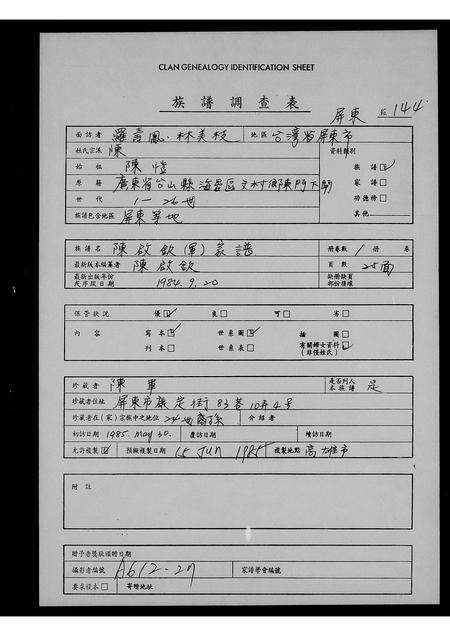 CLAN GENEALOGY IDENTIFICATION SHEET
族譜調查表
屏東 144
面訪者 羅香鳳·林美枝 地區 台灣省屏東市
姓氏宗派 陳 資料類別
始祖 陳愷 族譜☑
原籍 廣東省台山縣海晏區 家譜□
世代 1—26世 功德榜□
族譜包含地區 屏東等地 其他
族譜名 陳啟欽(軍)家譜 冊卷數 1 冊 卷
最新版本編纂者 陳啟欽 頁數 25面
最新出版年份 或序跋日期 1984.9.20 缺册缺頁 部份損壞
保管狀況 優☑ 良□ 可□ 劣□
內容 寫本☑ 世系圖☑ 插圖□
刊本□ 世系表□ 有關婦女資料☑ (非僅姓氏)
珍藏者 陳軍 是否列入本族譜 是
珍藏者住址 屏東市康定街83巷10弄4号
珍藏者在(家)宗族中之地位 24世裔孫 介紹者
初訪日期 1985. may 30. 覆訪日期 續訪日期
允許複製☑ 預擬複製日期 15 Jun 1985 複製地點 高雄市
附註
贈予者獎狀頒贈日期
攝影者編號 A612-27 家譜學會編號
要求複本□ 寄贈地址